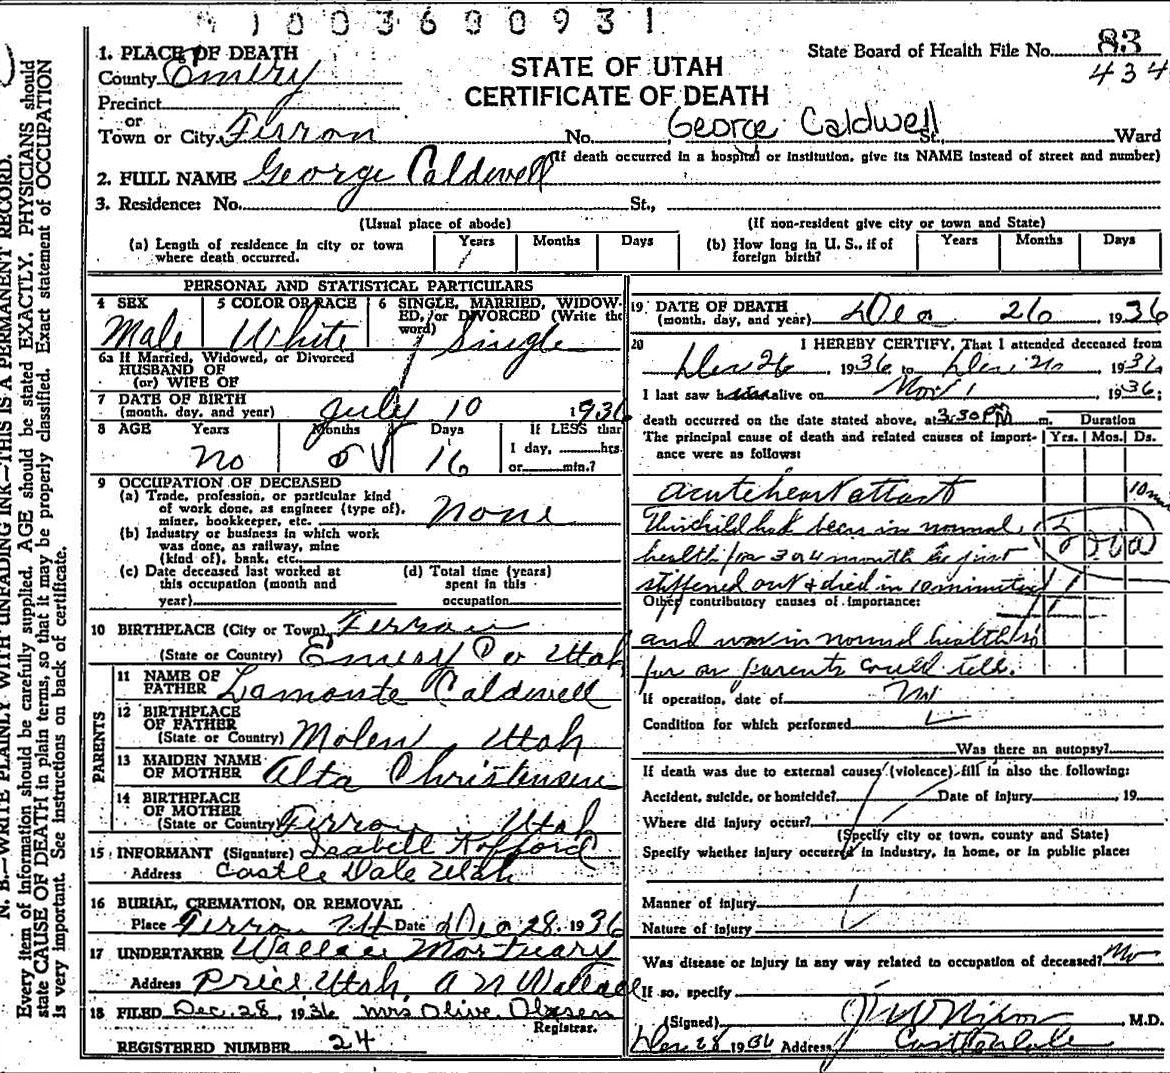 1003600931
1. PLACE OF DEATH
County Emery
Precinct
or
Town or City Ferron No. George Caldwell St., Ward
(If death occurred in a hospital or institution, give its NAME instead of street and number)
STATE OF UTAH
CERTIFICATE OF DEATH
State Board of Health File No. 83
434
2. FULL NAME George Caldwell
3. Residence: No. St.,
(Usual place of abode) (If non-resident give city or town and State)
(a) Length of residence in city or town where death occurred. Years Months Days
(b) How long in U. S., if of foreign birth? Years Months Days
PERSONAL AND STATISTICAL PARTICULARS
4 SEX Male
5 COLOR OR RACE White
6 SINGLE, MARRIED, WIDOWED, or DIVORCED (Write the word) Single
6a If Married, Widowed, or Divorced
HUSBAND OF
(or) WIFE OF
7 DATE OF BIRTH
(month, day, and year) July 10 1936
8 AGE Years Months Days If LESS than
No 5 16 1 day, hrs.
or min.?
9 OCCUPATION OF DECEASED
(a) Trade, profession, or particular kind
of work done, as engineer (type of),
miner, bookkeeper, etc. None
(b) Industry or business in which work
was done, as railway, mine
(kind of), bank, etc.
(c) Date deceased last worked at
this occupation (month and
year)
(d) Total time (years)
spent in this
occupation
10 BIRTHPLACE (City or Town) Ferron
(State or Country) Emery Co Utah
PARENTS
11 NAME OF
FATHER Lamonte Caldwell
12 BIRTHPLACE
OF FATHER
(State or Country) Molen Utah
13 MAIDEN NAME
OF MOTHER Alta Christensen
14 BIRTHPLACE
OF MOTHER
(State or Country) Ferron Utah
15 INFORMANT (Signature) Isabell Kofford
Address Castle Dale Utah
16 BURIAL, CREMATION, OR REMOVAL
Place Ferron Ut Date Dec 28 1936
17 UNDERTAKER Wallace Mortuary
Address Price Utah, A N Wallace
18 FILED Dec. 28, 1936 Mrs Olive Olsen
Registrar.
REGISTERED NUMBER 24
19 DATE OF DEATH
(month, day, and year) Dec 26, 1936
20 I HEREBY CERTIFY, That I attended deceased from
Dec 26, 1936 to Dec 26, 1936
I last saw h alive on Nov 1, 1936;
death occurred on the date stated above, at 3:30 PM m.
The principal cause of death and related causes of importance were as follows:
Duration
Yrs. Mos. Ds.
acute heart attact 10 m
This child had been in normal
health for 3 or 4 month he just
stiffened out & died in 10 minutes
Other contributory causes of importance:
and was in normal health so
far as parents could tell.
If operation, date of No
Condition for which performed
Was there an autopsy?
If death was due to external causes (violence) fill in also the following:
Accident, suicide, or homicide? Date of injury , 19
Where did injury occur?
(Specify city or town, county and State)
Specify whether injury occurred in industry, in home, or in public place:
Manner of injury
Nature of injury
Was disease or injury in any way related to occupation of deceased? No
If so, specify
(Signed) Nixon, M.D.
Dec 28 1936 Address Castle Dale
N. B.—WRITE PLAINLY WITH UNFADING INK—THIS IS A PERMANENT RECORD.
Every item of information should be carefully supplied. AGE should be stated EXACTLY. PHYSICIANS should
state CAUSE OF DEATH in plain terms, so that it may be properly classified. Exact statement of OCCUPATION
is very important. See instructions on back of certificate.